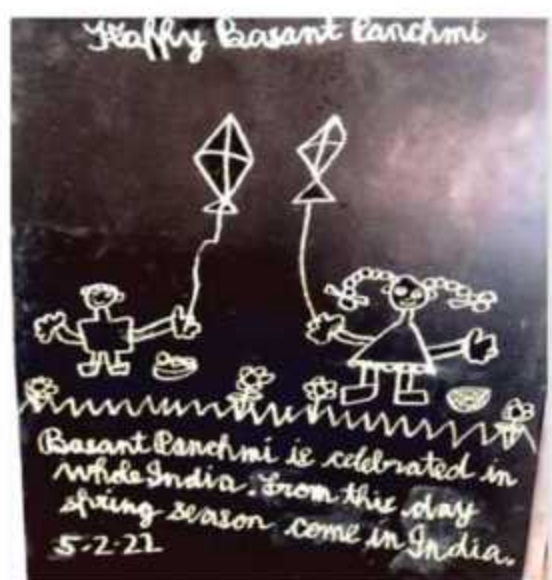 Happy Basant Panchmi
Basant Panchmi is celebrated in
whole India. From this day
spring season come in India.
5-2-22